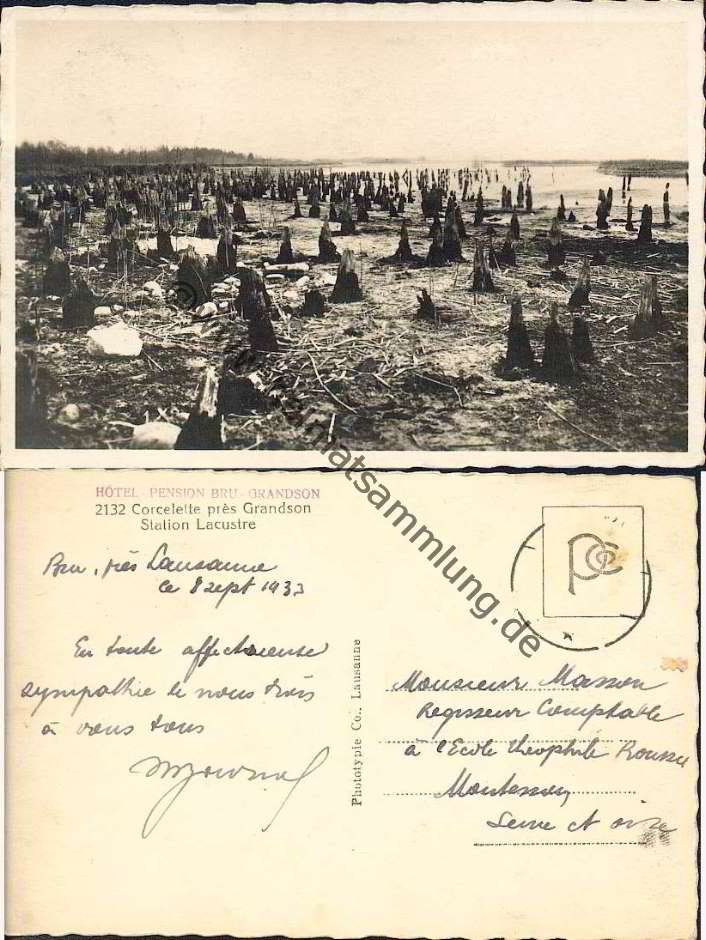 © www.heimatsammlung.de
HÔTEL - PENSION BRU - GRANDSON
2132 Corcelette près Grandson
Station Lacustre
Bru, près Lausanne
le 8 sept 1933
En toute affectueuse
sympathie de nous trois
à vous tous
Phototypie Co., Lausanne
Monsieur Masson
Régisseur Comptable
à l'Ecole théophile Roussel
Montesson
Seine et oise